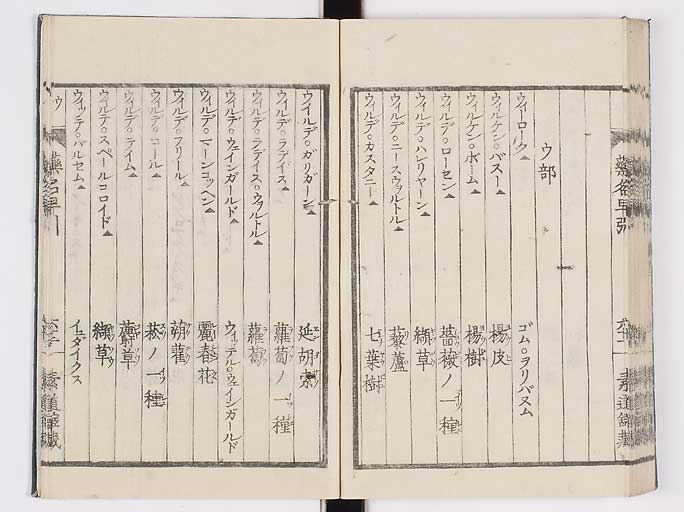 ウ部
ウィーローク ゴム。ヲリバヌム
ウィルケン。バスー 楊皮
ウィルケン。ボーム 楊樹
ウィルデ。ローセン 薔薇ノ一種
ウィルデ。ハレリヤーン 纈草
ウィルデ。ニースウヲルトル 藜蘆
ウィルデ。カスタニー 七葉樹
藥名早引
ウイルデ。ガリガーン 延胡索
ウィルデ。ラデイス 蘿蔔ノ一種
ウィルデ。ラデイス。ウヲルトル 蘿蔔
ウィルデ。ウェインガールド ウィッテル。ウェインガールド
ウィルデ。マーンコッペン 麗春花
ウィルデ。フリール 蒴藋
ウィルデ。コール 菘ノ一種
ウィルデ。テイム 麝草
ウィルデ。スペールコロイド 纈草
ウィッテ。バルセム イュダイクス